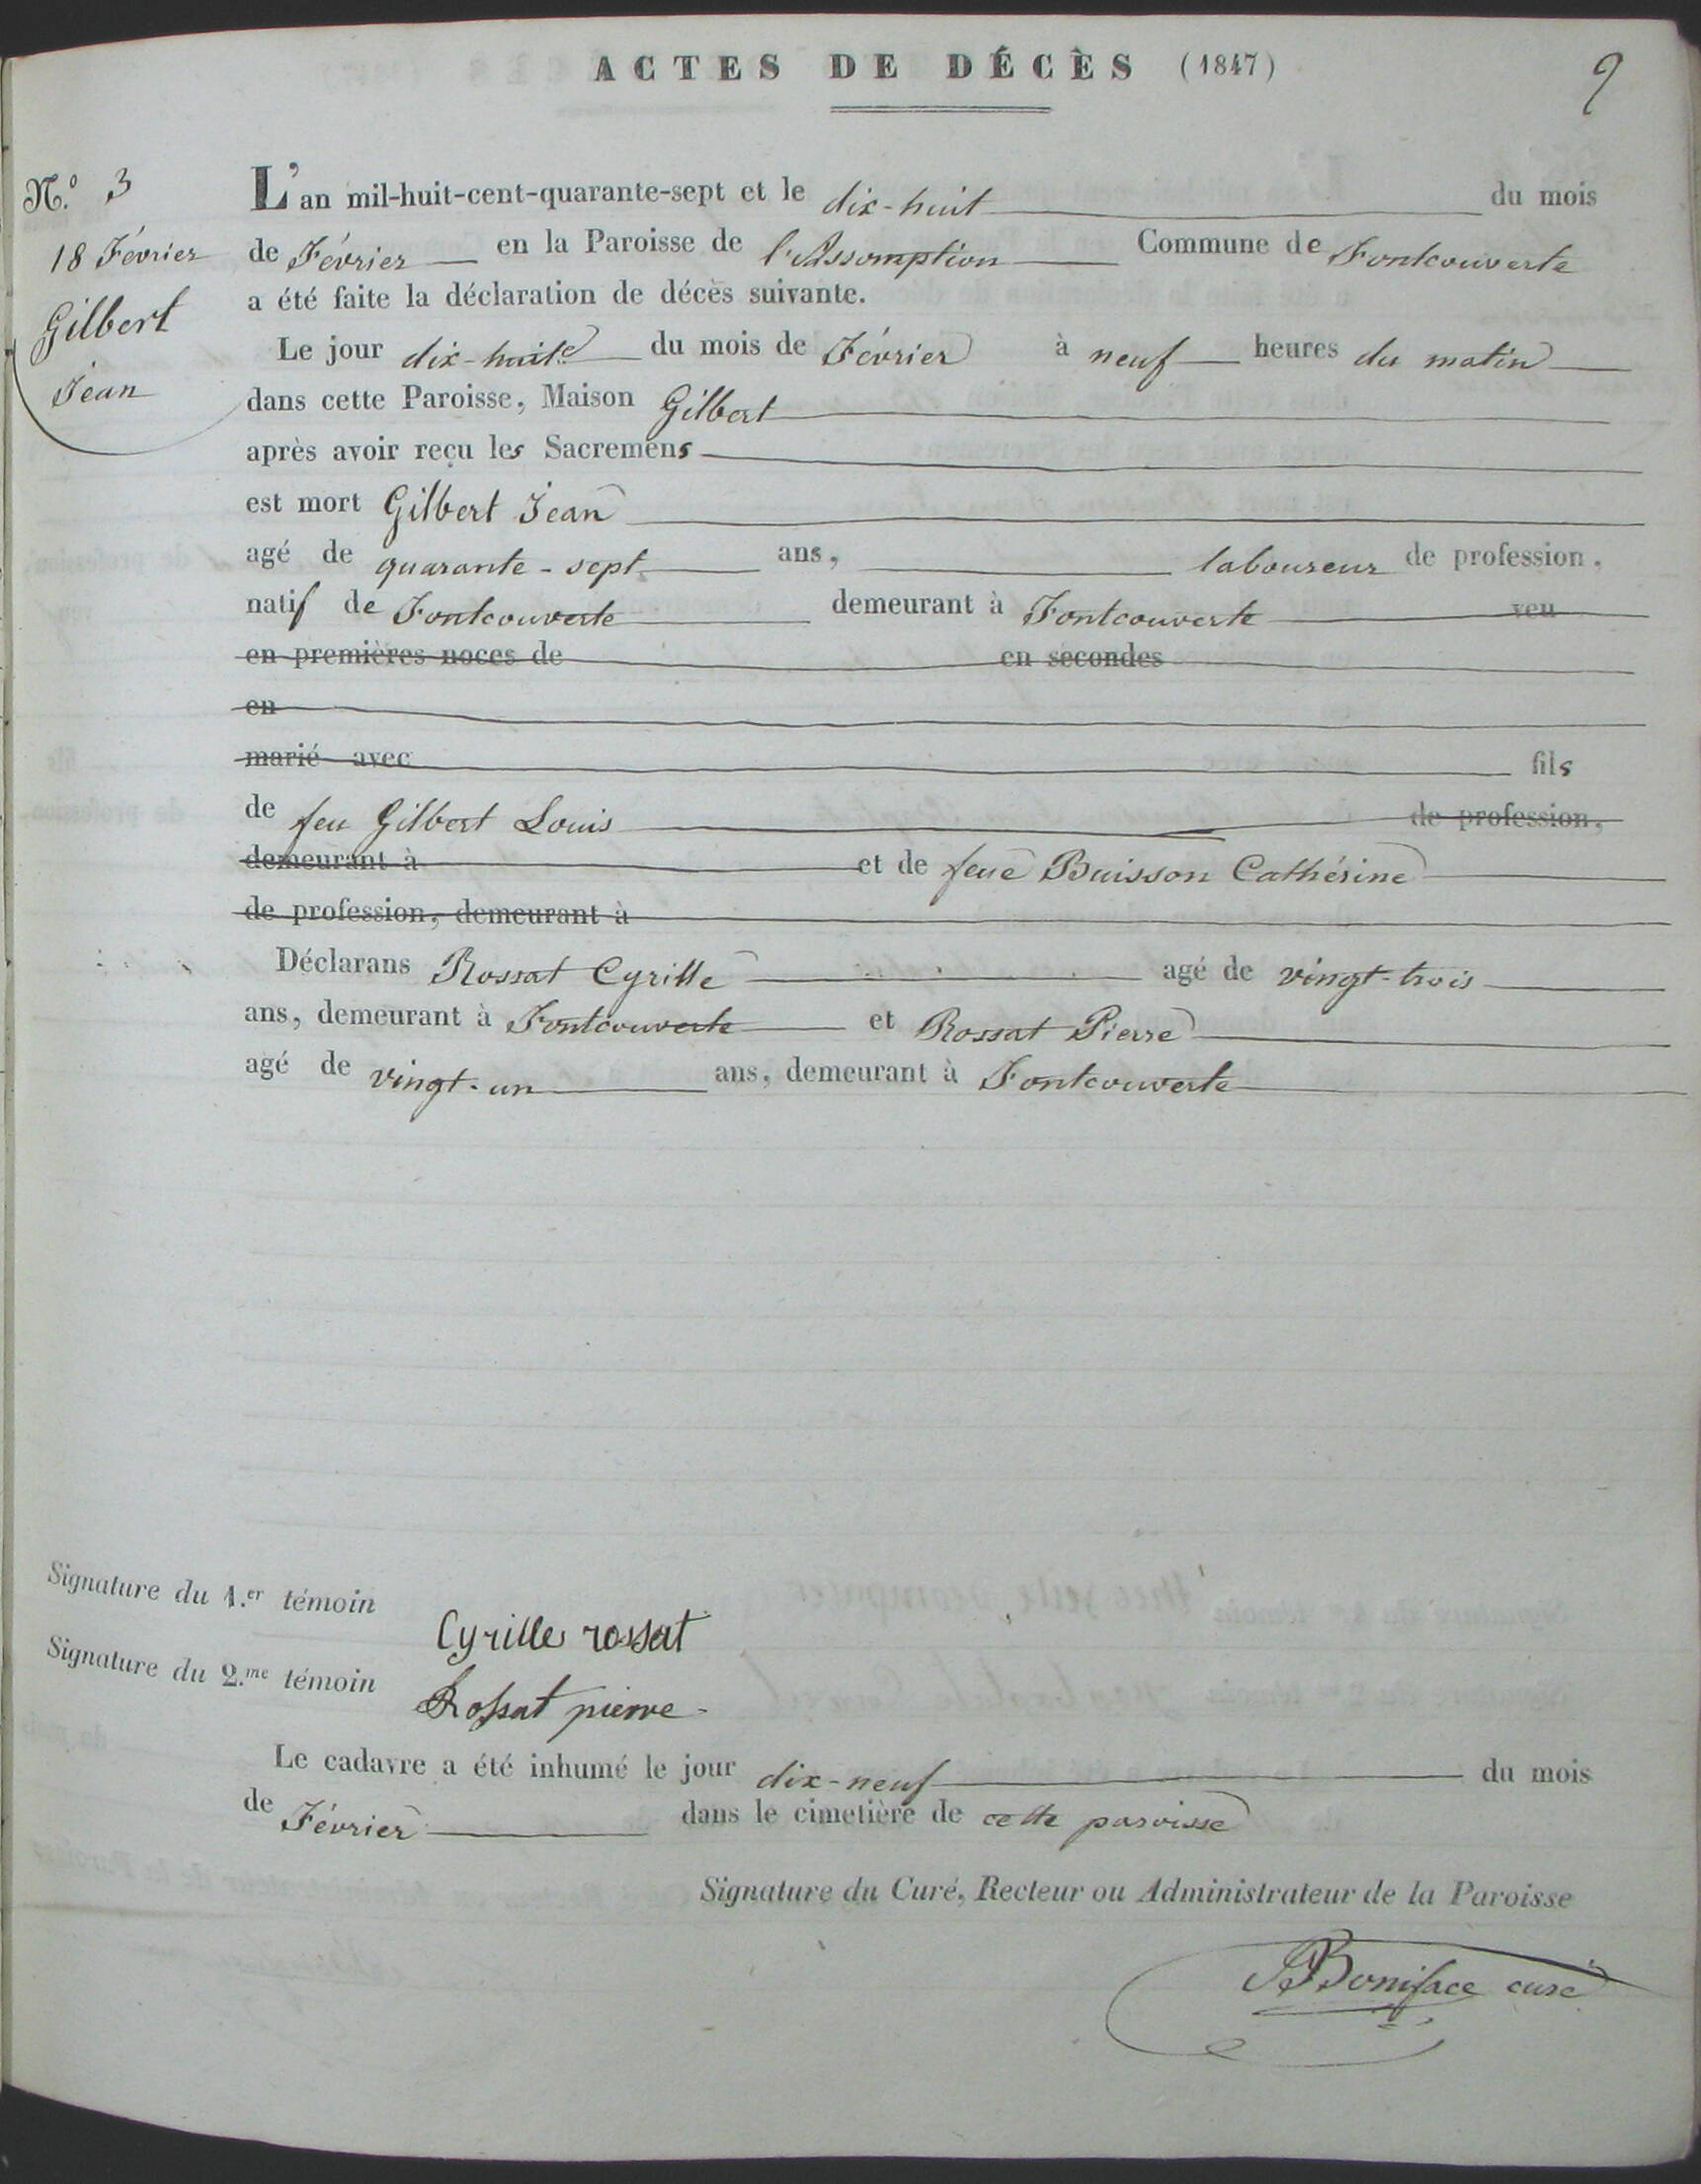 ACTES DE DÉCÈS (1847)
9
N.º 3
18 Février
Gilbert
Jean
L'an mil-huit-cent-quarante-sept et le dix-huit du mois
de Février en la Paroisse de l'Assomption Commune de Fontcouverte
a été faite la déclaration de décès suivante.
Le jour dix-huit du mois de Février à neuf heures du matin
dans cette Paroisse, Maison Gilbert
après avoir reçu les Sacremens
est mort Gilbert Jean
agé de quarante-sept ans, laboureur de profession,
natif de Fontcouverte demeurant à Fontcouverte veu
en premières noces de en secondes
en
marié avec fils
de feu Gilbert Louis de profession,
demeurant à et de feue Buisson Cathérine
de profession, demeurant à
Déclarans Rossat Cyrille agé de vingt-trois
ans, demeurant à Fontcouverte et Rossat Pierre
agé de vingt-un ans, demeurant à Fontcouverte
Signature du 1.er témoin Cyrille rossat
Signature du 2.me témoin Rossat pierre
Le cadavre a été inhumé le jour dix-neuf du mois
de Février dans le cimetière de cette paroisse
Signature du Curé, Recteur ou Administrateur de la Paroisse
Boniface curé